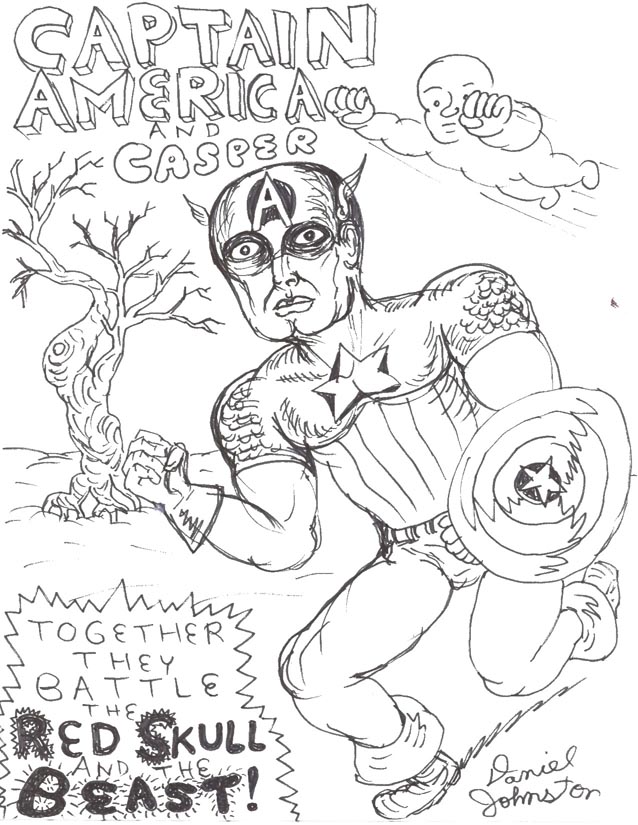 CAPTAIN
AMERICA
AND
CASPER
A
TOGETHER
THEY
BATTLE
THE
RED SKULL
AND THE
BEAST!
Daniel
Johnston